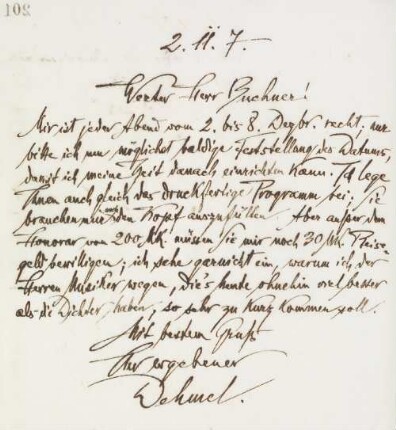 108
2. 11. 7.
Werter Herr Buchner!
Mir ist jeder Abend vom 2. bis 8. Dezbr. recht, nur
bitte ich um möglichst baldige Feststellung des Datums,
damit ich meine Zeit danach einrichten kann. Ich lege
Ihnen auch gleich das druckfertige Programm bei; Sie
brauchen nur noch den Kopf auszufüllen. Aber außer dem
Honorar von 200 Mk. müssen Sie mir noch 30 Mk. Reise-
geld bewilligen; ich sehe garnicht ein, warum ich der
Herren Musiker wegen, die's heute ohnehin viel besser
als die Dichter haben, so sehr zu kurz kommen soll.
Mit bestem Gruß
Ihr ergebener
Dehmel.